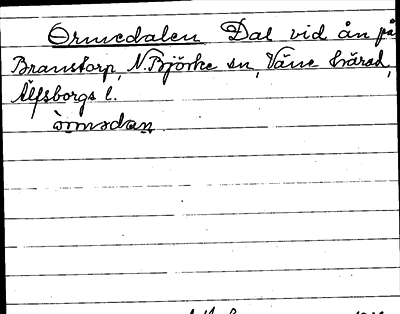 Ormedalen Dal vid ån på
Branstorp, N. Björke sn, Väne härad,
Älfsborgs l.
òrmədan